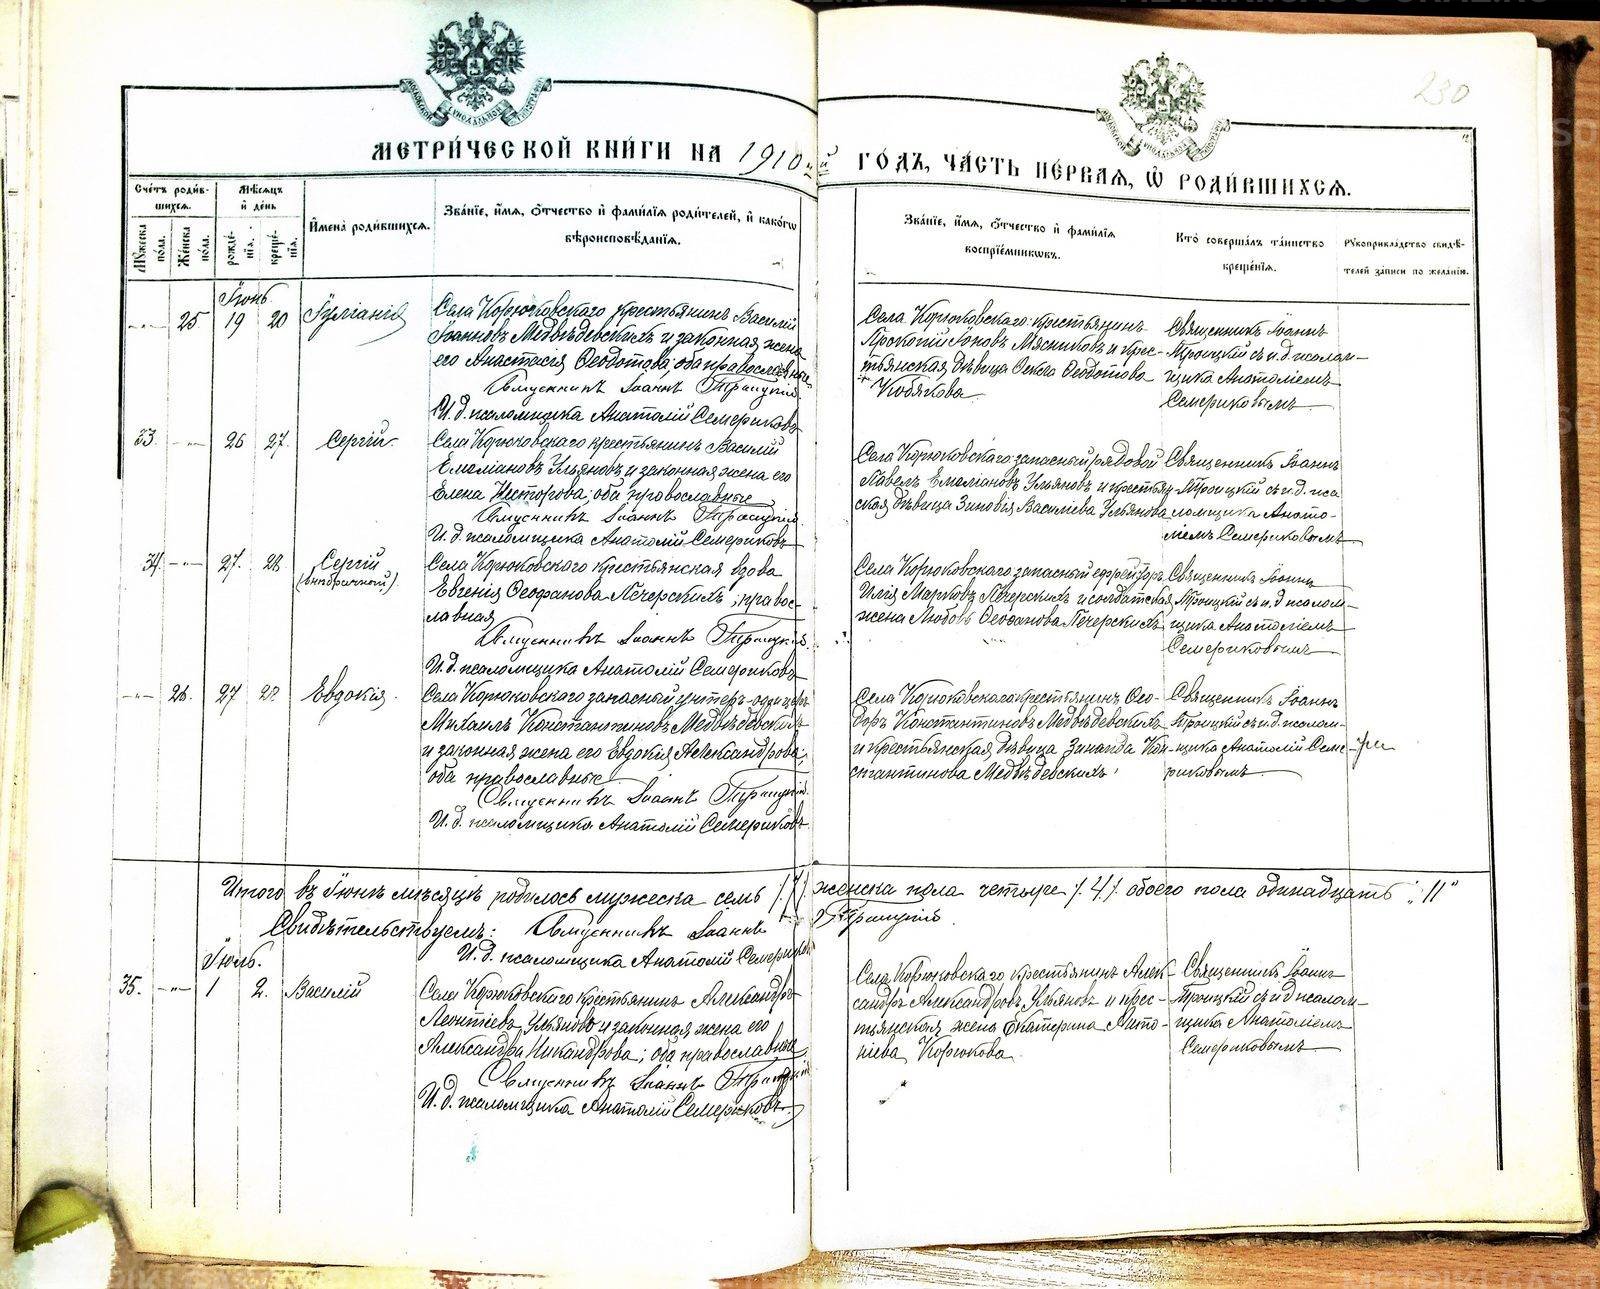 230
МЕТРИ́ЧЕСКОЙ КНИ́ГИ НА 1910й ГО́ДЪ, ЧА́СТЬ ПЕ́РВАЯ, Ѡ РОДИ́ВШИХСЯ.
Сче́тъ роди́в-
шихся.
Мѣ́сяцъ
и҆ де́нь
Му́жеска
по́ла.
Же́нска
по́ла.
рожде́-
нїѧ.
креще́-
нїѧ.
И҆мена̀ роди́вшихся.
Зва́нїе, и҆́мя, ѻ҆́тчество и҆ фами́лїя роди́телей, и҆ како́гѡ
вѣроисповѣ́данїя.
Зва́нїе, и҆́мя, ѻ҆́тчество и҆ фами́лїя
воспрїе́мникѡвъ.
Кто̀ соверша́лъ та́инство
креще́нїя.
Рꙋкоприкла́дство свидѣ́-
телей за́писи по жела́нїю.
Іюнь
25 19 20 Іуліанія
Села Корюковскаго крестьянинъ Василій
Іоанновъ Медвѣдевскихъ и законная жена
его Анастасія Ѳеодотова; оба православные
Священникъ Іоаннъ Троицкій
И. д. псаломщика Анатолій Семериковъ
Села Корюковскаго крестьянинъ
Прокопій Іоновъ Мясниковъ и крес-
тьянская дѣвица Ѳекла Ѳеодотова
Кобякова
Священникъ Іоаннъ
Троицкій съ и. д. псалом-
щика Анатоліемъ
Семериковымъ
33. 26 27. Сергій
Села Корюковскаго крестьянинъ Василій
Емеліановъ Ульяновъ и законная жена его
Елена Несторова; оба православные
Священникъ Іоаннъ Троицкій
И. д. псаломщика Анатолій Семериковъ
Села Корюковскаго запасный рядовой
Павелъ Емеліановъ Ульяновъ и крестьян-
ская дѣвица Зиновія Василіева Ульянова
Священникъ Іоаннъ
Троицкій съ и. д. пса
ломщика Анато-
ліемъ Семериковымъ
34. 27. 28. Сергій
(внѣбрачный)
Села Корюковского крестьянская вдова
Евгенія Ѳеофанова Печерскихъ; правос-
лавная
Священникъ Іоаннъ Троицкій
И. д. псаломщика Анатолій Семериковъ
Села Корюковскаго запасный ефрейторъ
Илія Марковъ Печерскихъ и солдатская
жена Любовь Ѳеофанова Печерскихъ
Священникъ Іоаннъ
Троицкій съ и. д. псалом-
щика Анатоліемъ
Семериковымъ
26. 27 28. Евдокія
Села Корюковскаго запасный унтеръ-офицеръ
Михаилъ Константиновъ Медвѣдевскихъ
и законная жена его Евдокія Александрова;
оба православные
Священникъ Іоаннъ Троицкій
И. д. псаломщика Анатолій Семериковъ
Села Корюковскаго крестьянинъ Ѳео-
доръ Константиновъ Медвѣдевскихъ
и крестьянская дѣвица Зинаида Кон-
стантинова Медвѣдевскихъ
Священникъ Іоаннъ
Троицкій съ и. д. псалом-
щика Анатолій Семе-
риковымъ
Итого въ Іюнѣ мѣсяцѣ родилось мужеска семь /7/ женска пола четыре /4/ обоего пола одинадцать „11"
Свидѣтельствуемъ: Священникъ Іоаннъ Троицкій
И. д. псаломщика Анатолій Семериковъ
Іюль.
35. 1 2. Василій
Села Корюковскаго крестьянинъ Александръ
Леонтіевъ Ульяновъ и законная жена его
Александра Никандрова; оба православные
Священникъ Іоаннъ Троицкій
И. д. псаломщика Анатолій Семериковъ
Села Корюковскаго крестьянинъ Алек-
сандръ Александровъ Ульяновъ и крес-
тьянская жена Екатерина Анто-
ніева Корюкова
Священникъ Іоаннъ
Троицкій съ и д псалом-
щика Анатоліемъ
Семериковымъ